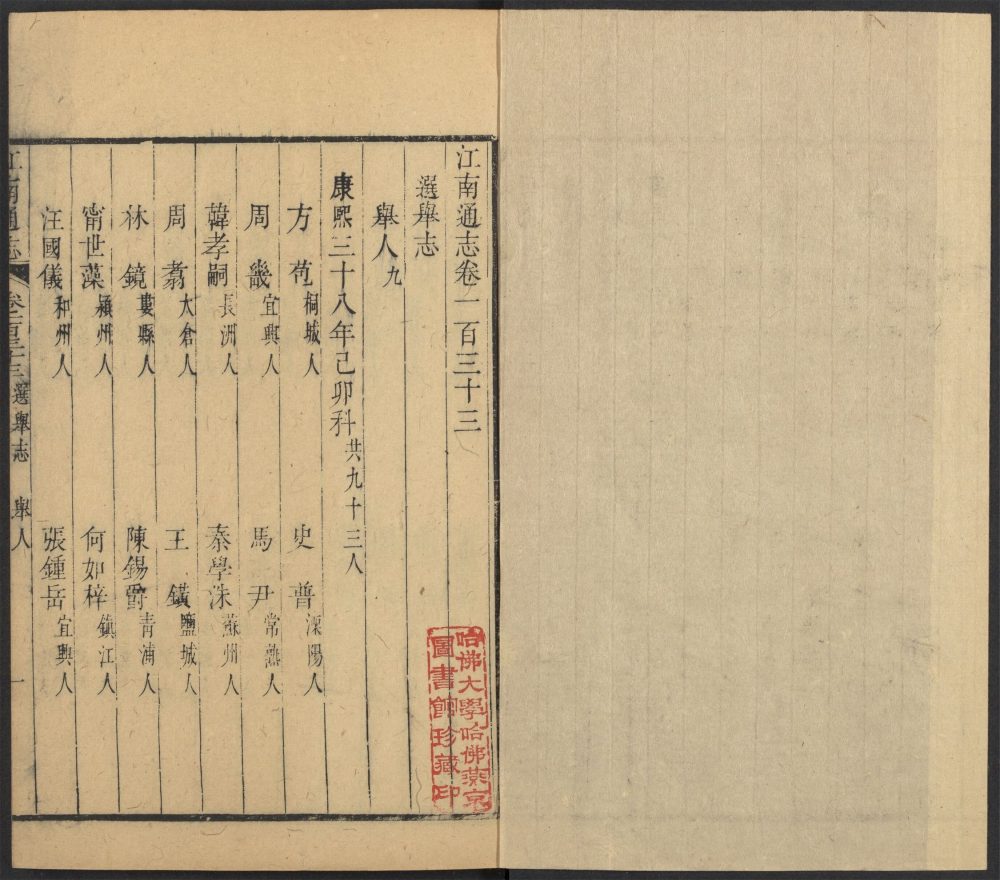 江南通志卷一百三十三
選舉志
舉人九
康熙三十八年己卯科共九十三人
方苞桐城人 史普溧陽人
周畿宜興人 馬尹常熟人
韓孝嗣長洲人 秦學洙蘇州人
周翥太倉人 王鐄鹽城人
林鏡婁縣人 陳錫爵青浦人
甯世藻潁州人 何如梓鎮江人
汪國儀和州人 張鍾岳宜興人
江南通志 卷一百三十三 選舉志 舉人 一
哈佛大學哈佛燕京
圖書館珍藏印